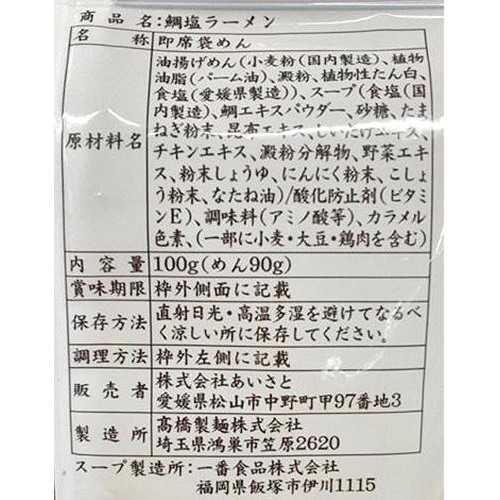 商品名:鯛塩ラーメン
名称 即席袋めん
原材料名 油揚げめん(小麦粉(国内製造)、植物
油脂(パーム油)、澱粉、植物性たん白、
食塩(愛媛県製造))、スープ(食塩(国
内製造)、鯛エキスパウダー、砂糖、たま
ねぎ粉末、昆布エキス、しいたけエキス、
チキンエキス、澱粉分解物、野菜エキ
ス、粉末しょうゆ、にんにく粉末、こしょ
う粉末、なたね油)/酸化防止剤(ビタミ
ンE)、調味料(アミノ酸等)、カラメル
色素、(一部に小麦・大豆・鶏肉を含む)
内容量 100g(めん90g)
賞味期限 枠外側面に記載
保存方法 直射日光・高温多湿を避けてなるべ
く涼しい所に保存してください。
調理方法 枠外左側に記載
販売者 株式会社あいさと
愛媛県松山市中野町甲97番地3
製造所 髙橋製麺株式会社
埼玉県鴻巣市笠原2620
スープ製造所:一番食品株式会社
福岡県飯塚市伊川1115